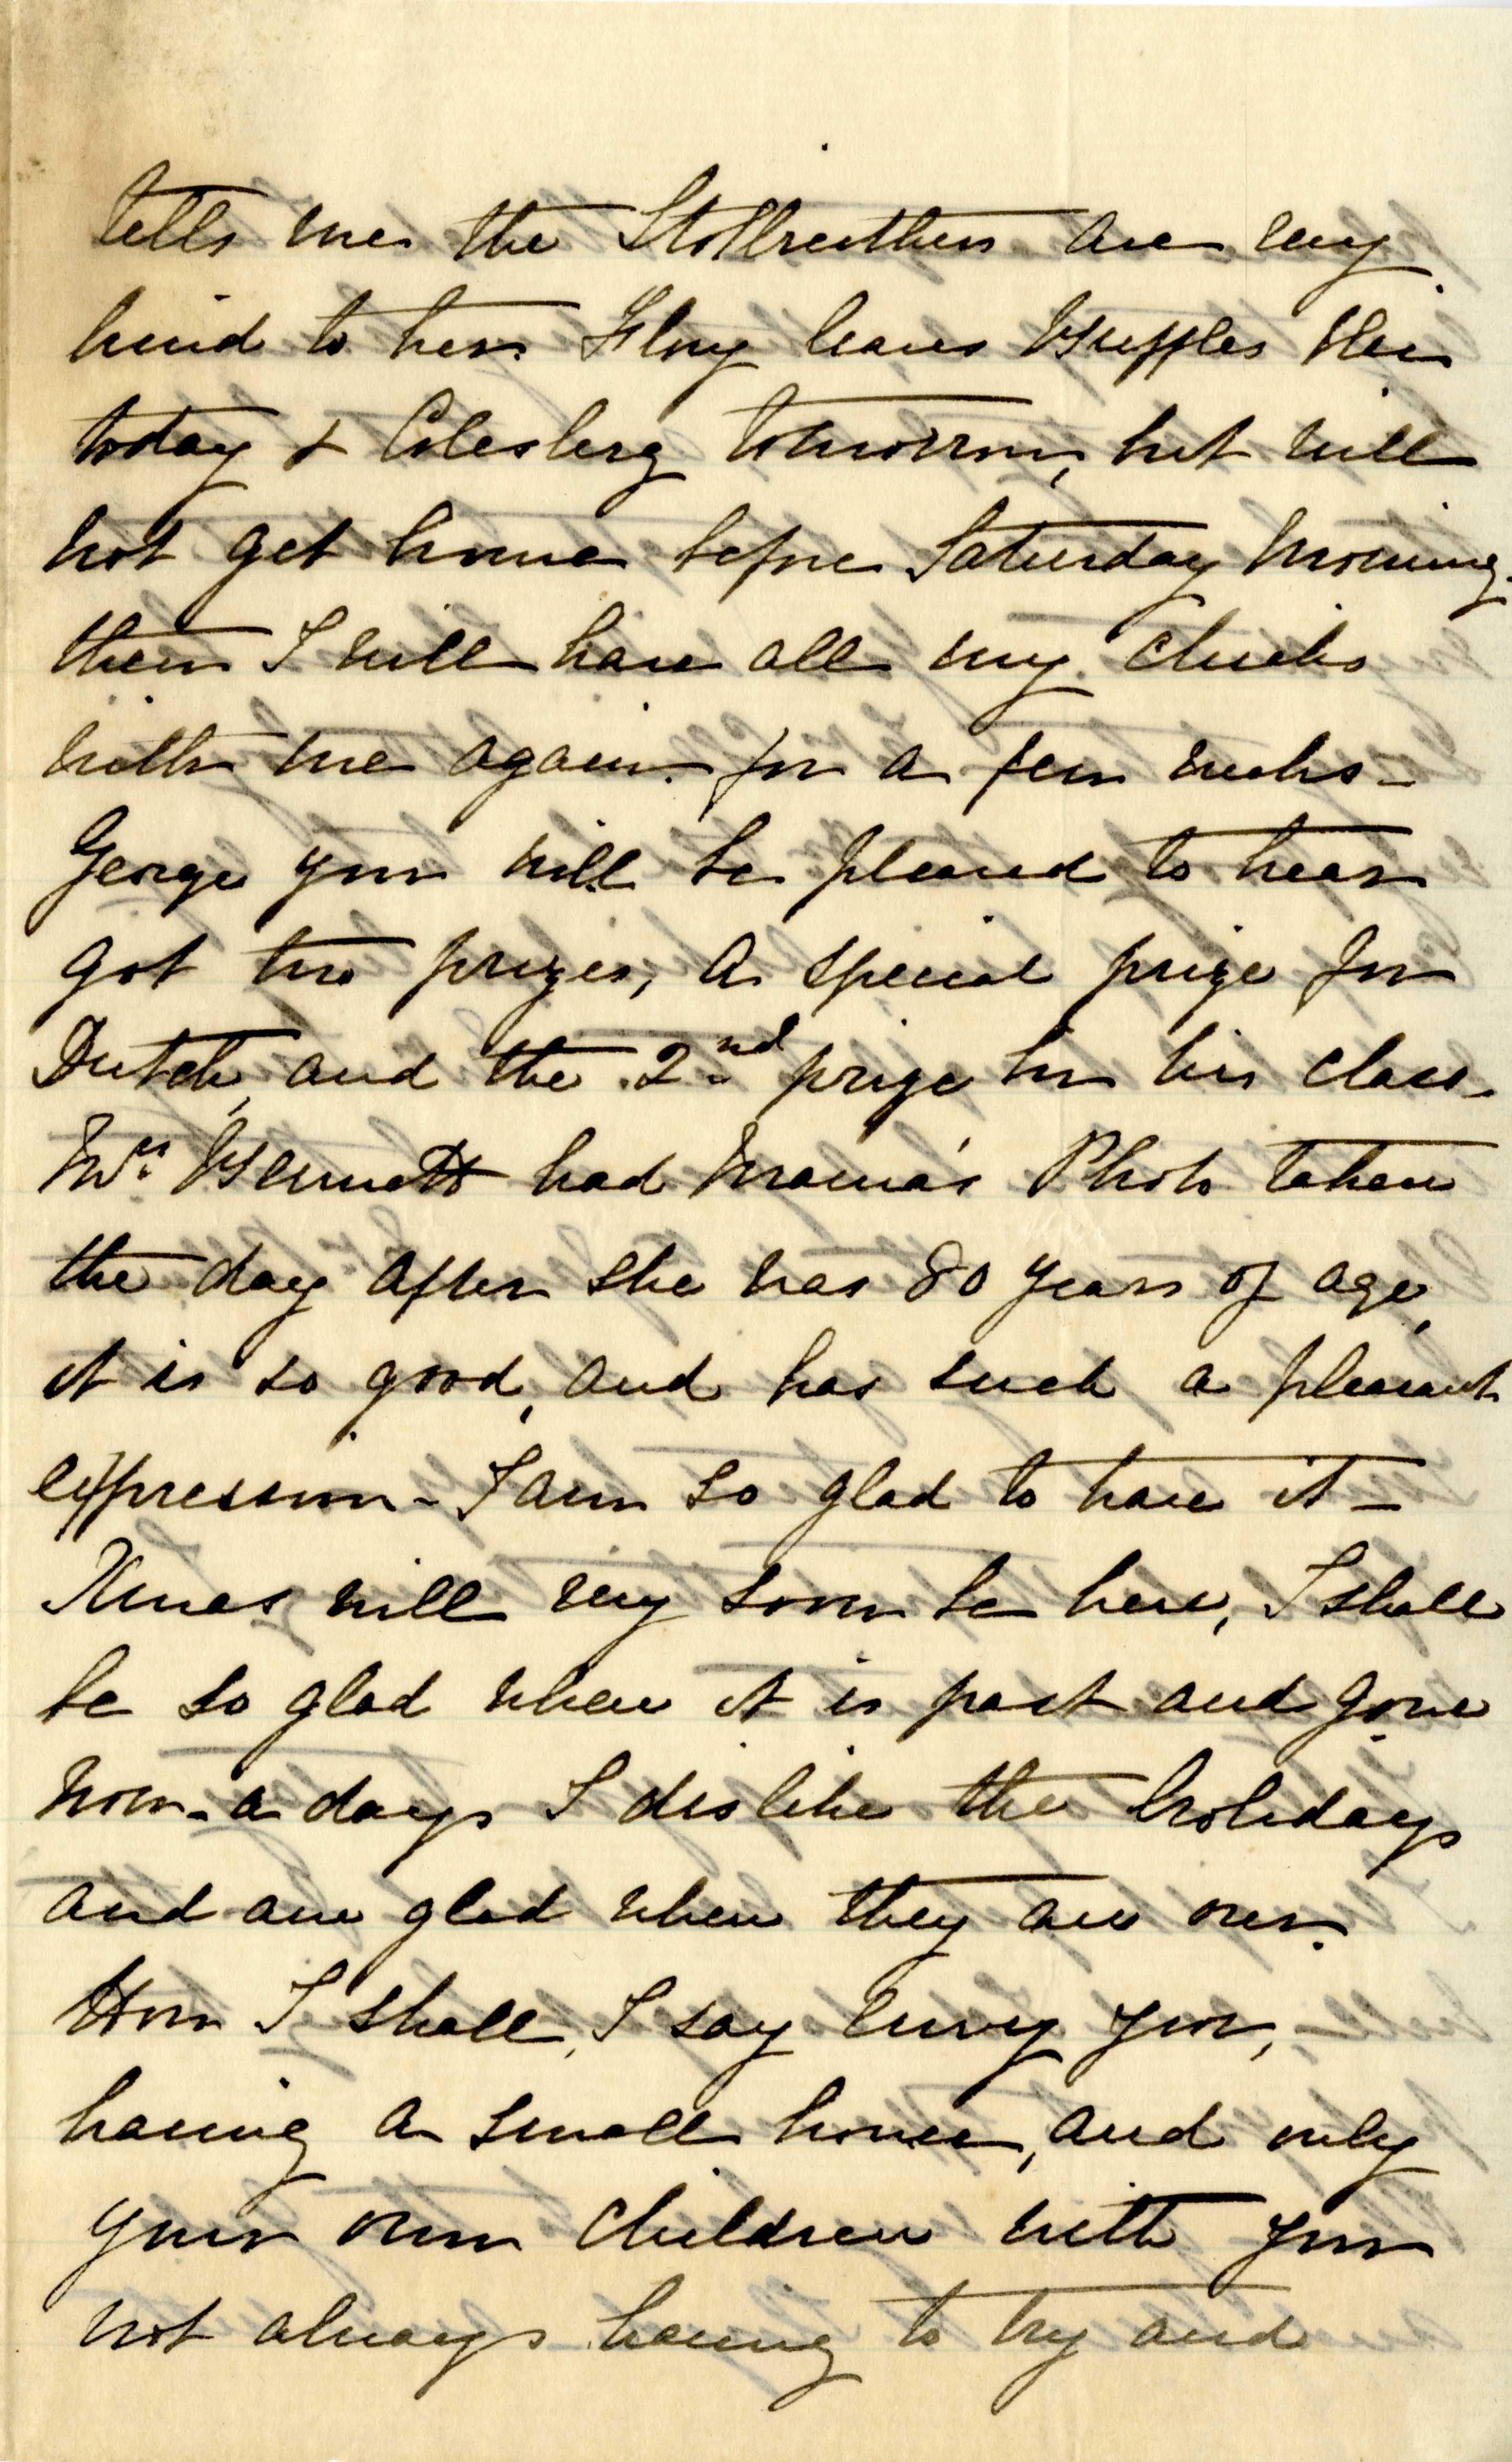 tells me the Stollreithers are very
kind to her. Floy leaves Buffles Vlei
today & Colesberg tomorrow, but will
not get home before Saturday morning.
then I will have all my chicks
with me again. for a few weeks -
George you will be pleased to hear
got two prizes, a special prize for
Dutch, and the 2nd prize in his class -
Mrs Bennett had Mama's Photo taken
the day after she was 80 years of age,
it is so good, and has such a pleasant
expression - I am so glad to have it -
Xmas will very soon be here, I shall
be so glad when it is past and gone
now-a days I dislike the holidays
and am glad when they are over.
How I shall, I say envy you,
having a small house, and only
your own children with you
not always having to try and